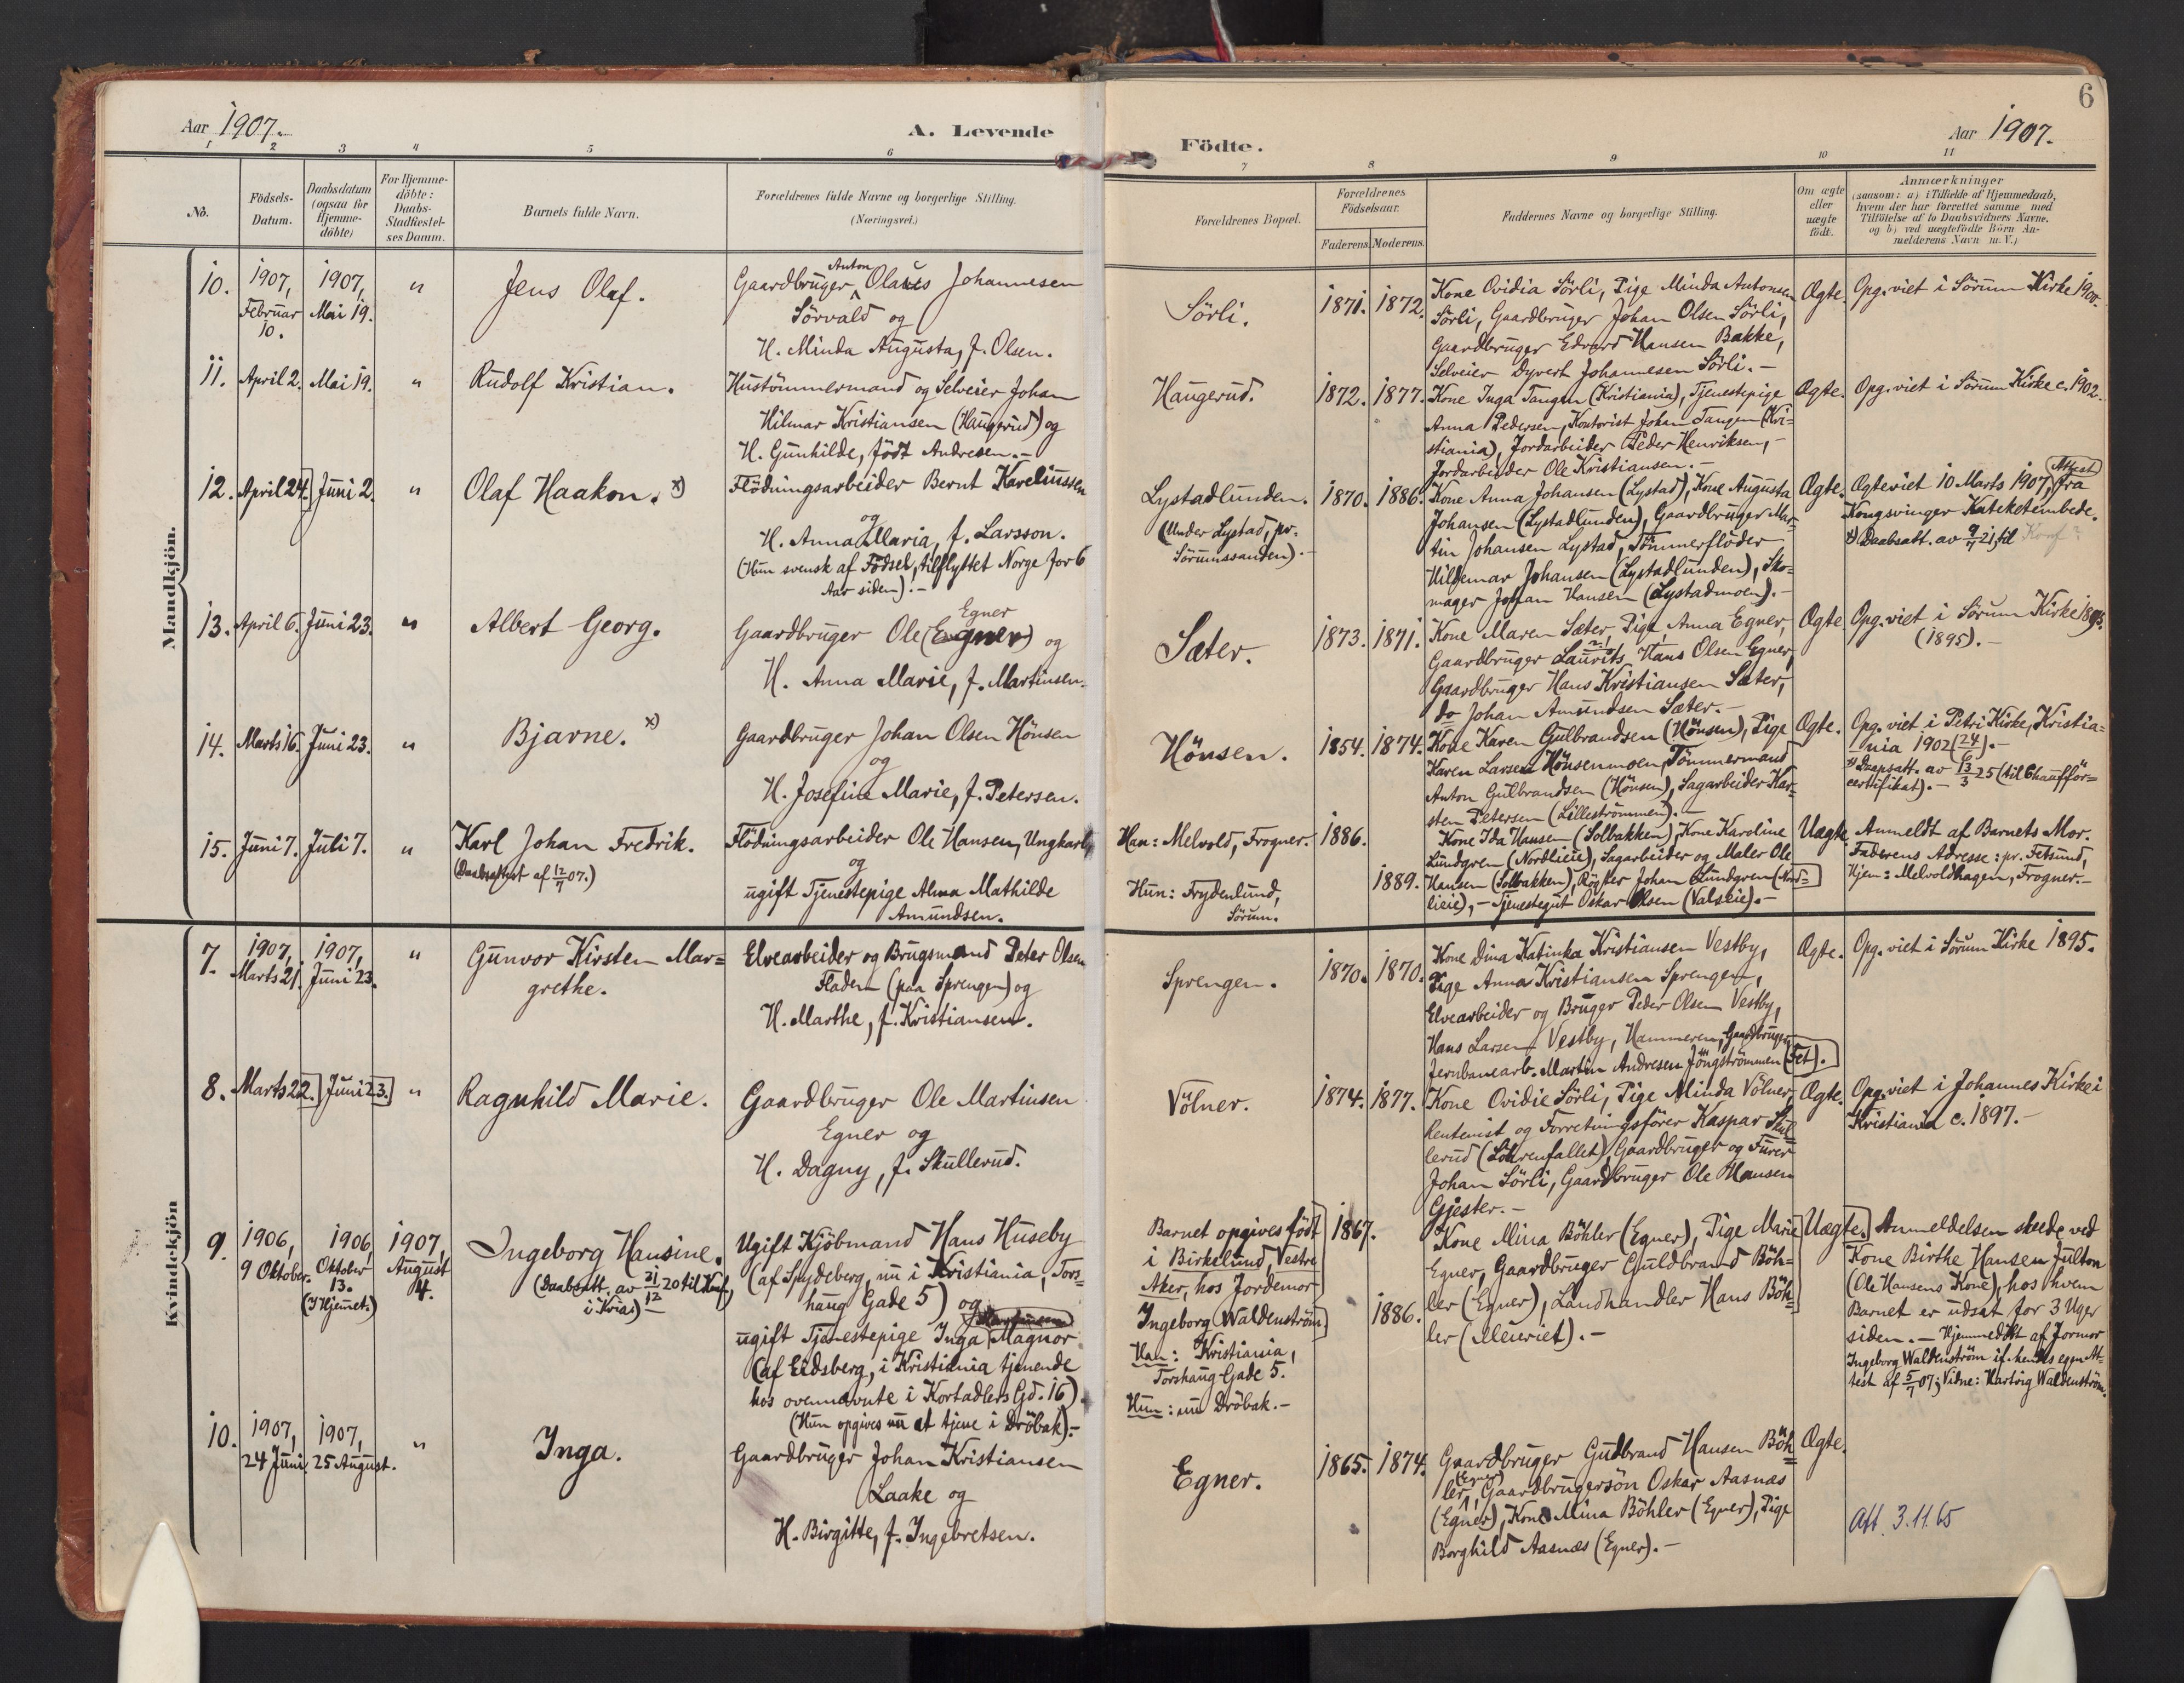 Aar 1907.
A. Levende
Födte.
Aar 1907.
6
1 2 3 4 5 6 7 8 9 10 11
No.
Födsels-
Datum.
Daabsdatum
(ogsaa for
Hjemme-
döbte)
For Hjemme-
döbte:
Daabs-
Stadfæstel-
ses Datum.
Barnets fulde Navn.
Forældrenes fulde Navne og borgerlige Stilling.
(Næringsvei.)
Forældrenes Bopæl.
Forældrenes
Födselsaar.
Faderens. Moderens.
Faddernes Navne og borgerlige Stilling.
Om ægte
eller
uægte
födt.
Anmærkninger
(saasom: a) i Tilfælde af Hjemmedaab,
hvem der har forrettet samme med
Tilföielse af to Daabsvidners Navne,
og b) ved uægtefödte Börn An-
melderens Navn m. V.)
Mandkjön.
10.
1907,
Februar
10.
1907,
Mai 19.
"
Jens Olaf.
Gaardbruger Anton Olaves Johannesen
Sörvald og
H. Minda Augusta, f. Olsen.
Sörli.
1871. 1872.
Kone Ovidia Sörli, Pige Minda Antonsen
Sörli, Gaardbruger Johan Olsen Sörli,
Gaardbruger Edvard Hansen Bakke,
Selveier Dyvert Johannesen Sörli.-
Ægte.
Opg. viet i Sörum Kirke 1900.
11.
April 2.
Mai 19.
"
Rudolf Kristian.
Hustömmermand og Selveier Johan
Hilmar Kristiansen (Haugerud) og
H. Gunhilde, födt Andresen.-
Haugerud.
1872. 1877.
Kone Inga Tangen (Kristiania), Tjenestepige
Anna Pedersen, Kontorist Johan Tangen (Kri-
stiania), Jordarbeider Peder Henriksen,-
Jordarbeider Ole Kristiansen.-
Ægte.
Opg. viet i Sörum Kirke c. 1902.
12.
April 24.
Juni 2.
"
Olaf Haakon. x)
Flödningsarbeider Bernt Kareliussen
og
H. Anna Maria, f. Larsson.
(Hun svensk af Födsel, tilflyttet Norge for 6
Aar siden).-
Lystadlunden.
(Under Lystad, pr.
Sörumssanden).
1870. 1886.
Kone Anna Johansen (Lystad), Kone Augusta
Johansen (Lystadlunden), Gaardbruger Mar-
tin Johansen Lystad, Tömmerflöder
Hildemar Johansen (Lystadlunden), Sko-
mager Johan Hansen (Lystadmoen).-
Ægte.
Ægteviet 10 Marts 1907, Attest fra
Kongsvinger Kateketembede.
x) Daabsatt. av 9/7 21, til Konf?
13.
April 6.
Juni 23.
"
Albert Georg.
Gaardbruger Ole (Egner) Egner og
H. Anna Marie, f. Martinsen.
Sæter.
1873. 1871.
Kone Maren Sæter, Pige Anna Egner,
Gaardbruger Laurits Hans Olsen Egner,
Gaardbruger Hans Kristiansen Sæter,
do Johan Amundsen Sæter.-
Ægte.
Opg. viet i Sörum Kirke 1895.
(1895).-
14.
Marts 16.
Juni 23.
"
Bjarne. x)
Gaardbruger Johan Olsen Hönsen
og
H. Josefine Marie, f. Petersen.
Hönsen.
1854. 1874.
Kone Karen Gulbrandsen (Hönsen), Pige
Karen Larsen Hönsenmoen, Tömmermand
Anton Gulbrandsen (Hönsen), Sagarbeider Kar-
sten Petersen (Lilleströmmen).-
Ægte.
Opg. viet i Petri Kirke, Kristia-
nia 1902 (24/6).-
x) Daapsatt. av 13/3 25 (til Chaufför-
certifikat).-
15.
Juni 7.
Juli 7.
"
Karl Johan Fredrik.
(Daabsattest af 12/7 07.)
Flödningsarbeider Ole Hansen, Ungkarl,
og
ugift Tjenestepige Alma Mathilde
Amundsen.
Han: Melvold, Frogner.
Hun: Frydenlund,
Sörum.
1886.
1889.
Kone Ida Hansen (Solbakken), Kone Karoline
Lundgren (Nordlieie), Sagarbeider og Maler Ole
Hansen (Solbakken), Röster Johan Lundgren (Nord-
lieie),- Tjenestegut Oskar Olsen (Valseie).-
Uægte.
Anmeldt af Barnets Mor.
Faderens Adresse: pr. Fetsund,
Hjem: Melvoldhagen, Frogner.-
Kvindekjön
7.
1907,
Marts 21.
1907,
Juni 23.
"
Gunvor Kirsten Mar-
grethe.
Elvearbeider og Brugsmand Peter Olsen
Fladen (paa Sprengen) og
H. Marthe, f. Kristiansen.
Sprengen.
1870. 1870.
Kone Dina Katinka Kristiansen Vestby,
Pige Anna Kristiansen Sprengen,
Elvearbeider og Bruger Peder Olsen Vestby,
Hans Larsen Vestby, Hammeren, Gaardbruger
Jernbanearb. Martin Andresen Jöngströmmen (Fet).
Ægte.
Opg. viet i Sörum Kirke 1895.
8.
Marts 22.
Juni 23.
"
Ragnhild Marie.
Gaardbruger Ole Martinsen
Egner og
H. Dagny, f. Skullerud.
Völner.
1874. 1877.
Kone Ovidie Sörli, Pige Minda Völner,
Rentenist og Forretningsförer Kaspar Skul
lerud (Lökrenfallet), Gaardbruger og Furer
Johan Sörli, Gaardbruger Ole Hansen
Gjester.-
Ægte.
Opg. viet i Johannes Kirke i
Kristiania c. 1897.-
9.
1906,
9 Oktober.
1906,
Oktober
13.
(I Hjemmet.)
1907,
August
4.
Ingeborg Hansine.
(Daabsatt. av 21/12 20 til Konf.
i Kria.)
Ugift Kjöbmand Hans Huseby
(af Spydeberg, nu i Kristiania, Tors-
haug Gade 5) og
ugift Tjenestepige Inga Magnor
(af Eidsberg, i Kristiania tjenende
hos ovennævnte i Kortadlers Gd. 16).
(Hun opgives nu at tjene i Dröbak).-
Barnet opgives födt
i Birkelund, Vestre
Aker, hos Jordemor
Ingeborg Waldenström
Han: Kristiania,
Torshaug-Gade 5.
Hun: nu Dröbak.-
1867.
1886.
Kone Mina Böhler (Egner), Pige Marie
Egner, Gaardbruger Guldbrand Böh-
ler (Egner), Landhandler Hans Böh-
ler (Meieriet).-
Uægte.
Anmeldelsen skede ved
Kone Birthe Hansen Julton
(Ole Hansens Kone), hos hvem
Barnet er udsat for 3 Uger
siden.- Hjemmedöbt af Jormor
Ingeborg Waldenström if. hendes egen At-
test af 5/7 07; Vidne: Hartvig Waldenström.
10.
1907,
24 Juni.
1907,
25 August.
"
Inga.
Gaardbruger Johan Kristiansen
Laake og
H. Birgitte, f. Ingebretsen.
Egner.
1865. 1874.
Gaardbruger Gudbrand Hansen Böh-
ler (Egner), Gaardbrugersön Oskar Aasnæs
(Egner), Kone Mina Böhler (Egner), Pige
Borghild Aasnæs (Egner).-
Ægte.
Att. 3.11.65